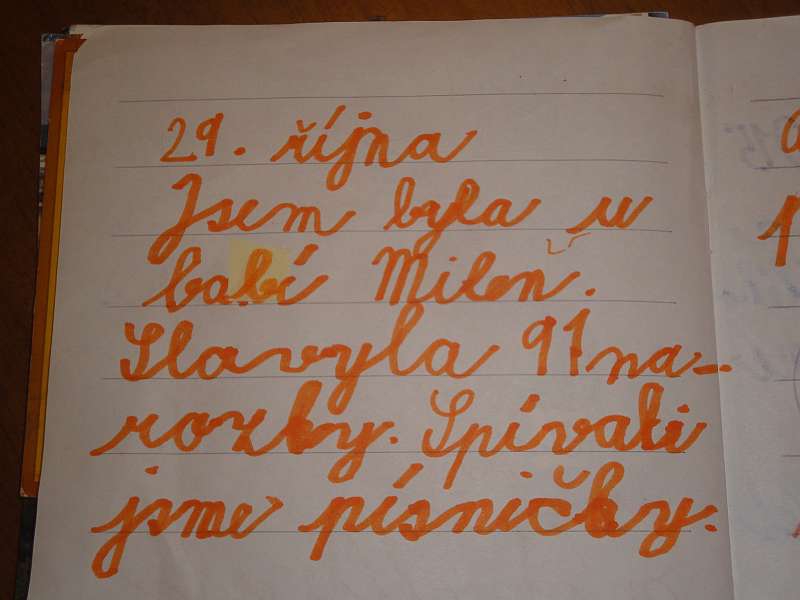 29. října
Jsem byla u
babí Mileň.
Slavyla 91 na-
rozky. Spívali
jsme písničky.